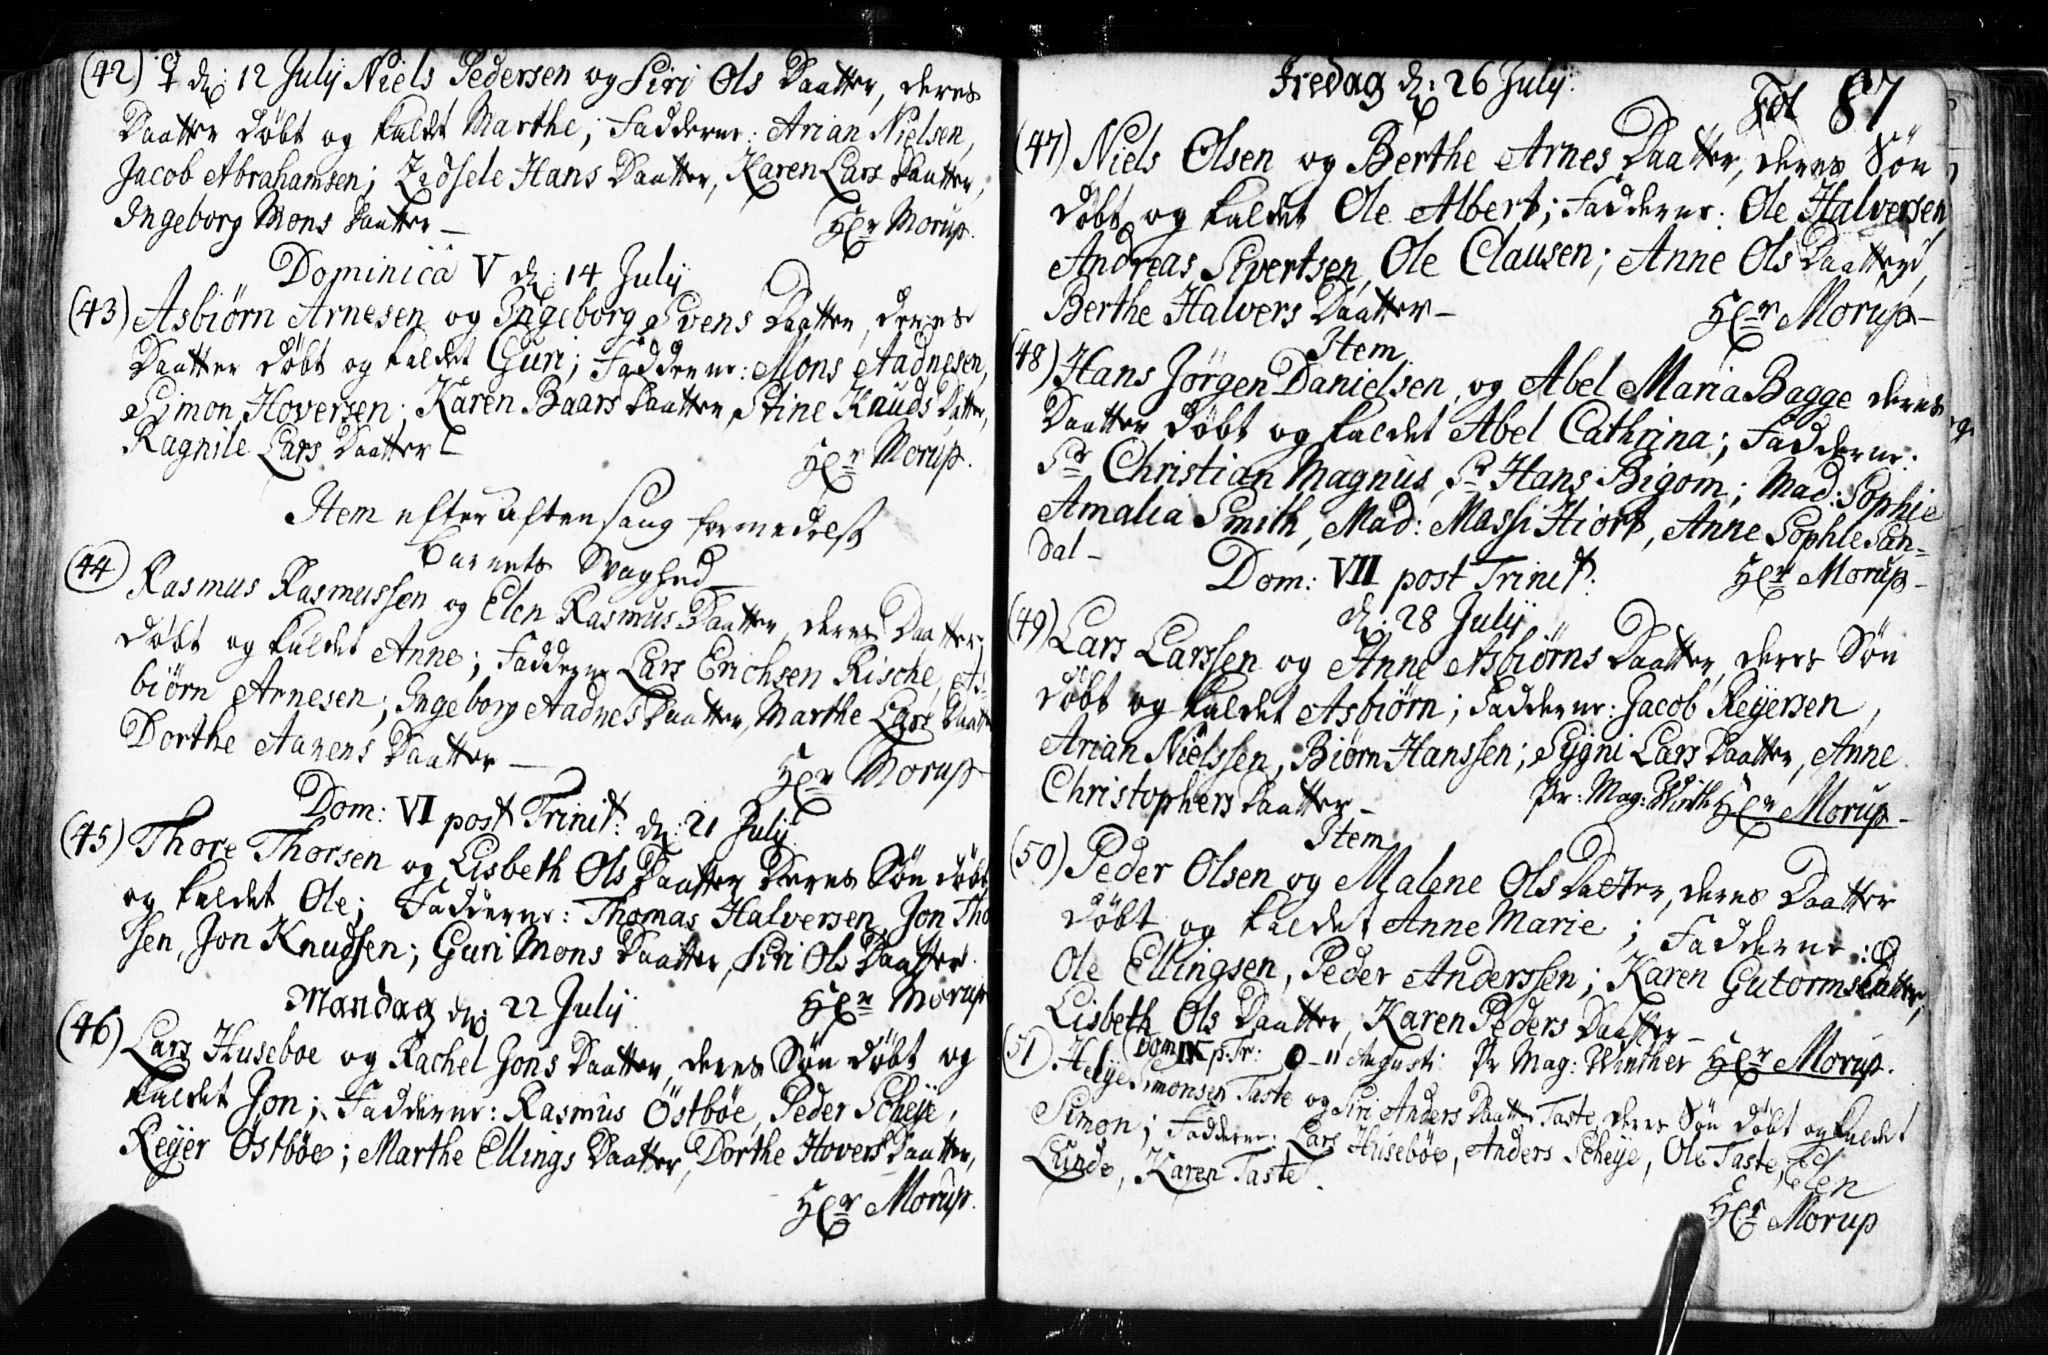 (42) ♀ d: 12 Julij Niels Pedersen og Siri Ols Daatter, deres
Daatter døbt og kaldet Marthe; Fadderne: Arian Nielsen,
Jacob Abrahamsen; Zidsele Hans Daatter, Karen Lars Daatter,
Ingeborg Mons Daatter – Hr Morup.
Dominica V d: 14 Julij
(43) Asbiørn Arnesen og Ingeborg Svens Daatter, deres
Daatter døbt og kaldet Guri; Fadderne: Mons Aadnesen,
Simon Hoversen; Karen Baars Daatter, Stine Knuds Datter,
Ragnile Lars Daatter – Hr Morup.
Item efter Aftensang formedelst
Barnets Svaghed –
(44) Rasmus Rasmussen og Elen Rasmus Daatter, deres Daatter
døbt og kaldet Anne; Fadderne Lars Erichsen Rische, As-
biørn Arnesen; Ingeborg Aadnes Daatter, Marthe Lars Daatter
Dorthe Aarens Daatter – Hr Morup
Dom: VI post Trinit: d: 21 Julij
(45) Thore Thorsen og Lisbeth Ols Daatter deres Søn døbt
og kaldet Ole; Fadderne: Thomas Halversen, Jon Tho
sen, Jon Knudsen; Guri Mons Daatter, Siri Ols Daatter.
Mandag d: 22 Julij Hr Morup
(46) Lars Huseboe og Rachel Jons Daatter, deres Søn døbt og
kaldet Jon; Fadderne: Rasmus Østbøe, Peder Scheije,
Reijer Østbøe; Marthe Ellings Daatter, Dorthe Hovers Daatter,
Hr Morup.
Fredag d: 26 Julij.
Fol 87
(47) Niels Olsen og Berthe Arnes Daatter, deres Søn
døbt og kaldet Ole Albert; Fadderne: Ole Halversen,
Andreas Sivertsen, Ole Clausen; Anne Ols Daatter,
Berthe Halvers Daatter – Hr Morup –
Item.
(48) Hans Jørgen Danielsen, og Abel Maria Bagge deres
Daatter døbt og kaldet Abel Cathrina; Fadderne:
Sr Christian Magnus, Sr Hans Bigom; Mad: Sophie
Amalia Smith, Mad: Massi Hiort, Anne Sophie San-
dal – Hr Morup –
Dom: VII post Trinit:
d: 28 Julij
(49) Lars Larssen og Anne Asbiørns Daatter, deres Søn
døbt og kaldet Asbiørn; Fadderne: Jacob Reijersen,
Arian Nielssen, Biørn Hanssen; Sygni Lars Daatter, Anne
Christophers Daatter – Pr: Mag: Winth Hr Morup –
Item
(50) Peder Olsen og Malene Ols Datter, deres Daatter
døbt og kaldet Anne Marie; Fadderne:
Ole Ellingsen, Peder Anderssen; Karen Gutorms Datter,
Lisbeth Ols Daatter, Karen Peders Daatter –
Pr Mag: Winther Hr Morup.
Dom IX p. Tr: – 11 Augusti
(51) Helje Simonsen Taste og Siri Anders Daatter Taste, deres Søn døbt og kaldet
Simon; Fadderne: Lars Husebøe, Anders Scheije, Ole Taste, Elen
Lunde, Karen Taste.
Hr Morup